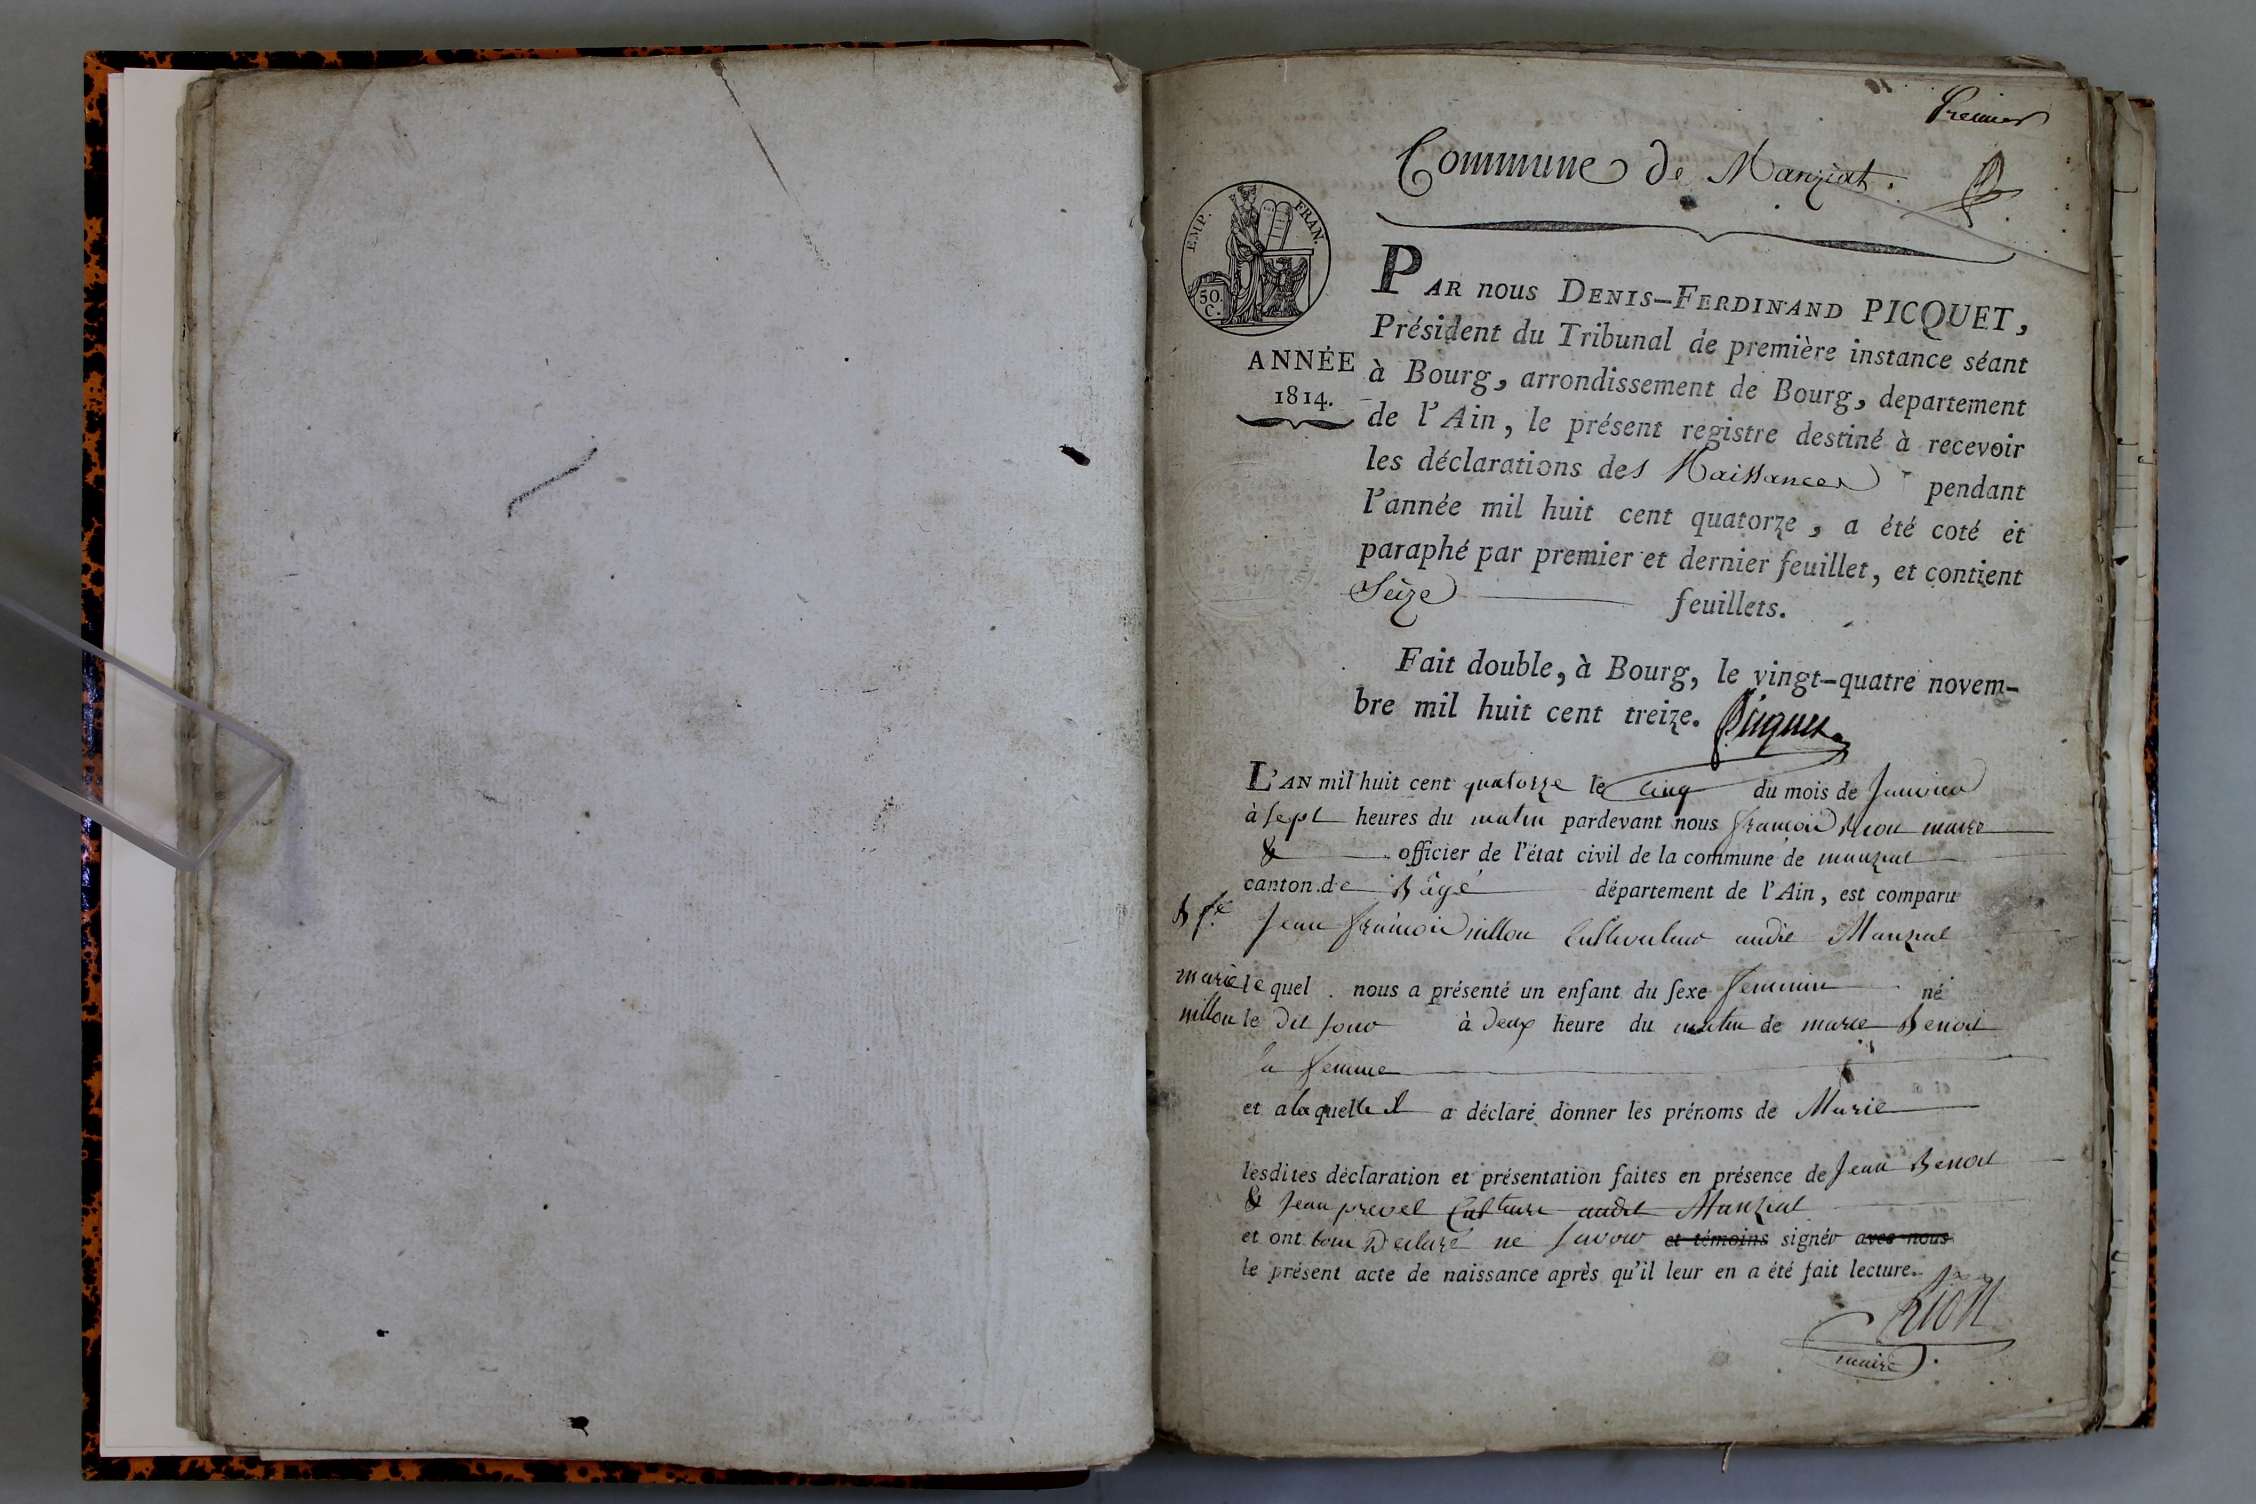 Premier
Commune de Manziat.
EMP. FRAN.
50.
C.
ANNÉE
1814.
PAR nous DENIS-FERDINAND PICQUET,
Président du Tribunal de première instance séant
à Bourg, arrondissement de Bourg, departement
de l'Ain, le présent registre destiné à recevoir
les déclarations des Naissances pendant
l'année mil huit cent quatorze, a été coté et
paraphé par premier et dernier feuillet, et contient
Seize feuillets.
Fait double, à Bourg, le vingt-quatre novem-
bre mil huit cent treize. Picquet
L'AN mil huit cent quatorze le cinq du mois de Janvier
à sept heures du matin pardevant nous françois Rion maire
& officier de l'état civil de la commune de manziat
canton de Bâgé département de l'Ain, est comparu
Jean françois nillon Cultivateur audit Manziat
marie
nillon
lequel nous a présenté un enfant du sexe feminin né
le dit jour à deux heure du matin de marie Benoit
sa femme
et a laquelle il a déclaré donner les prénoms de Marie
lesdites déclaration et présentation faites en présence de Jean Benoit
& Jean prevel audit Manziat
et ont tous Declaré ne savoir et témoins signér avec nous
le présent acte de naissance après qu'il leur en a été fait lecture.
Rion
maire